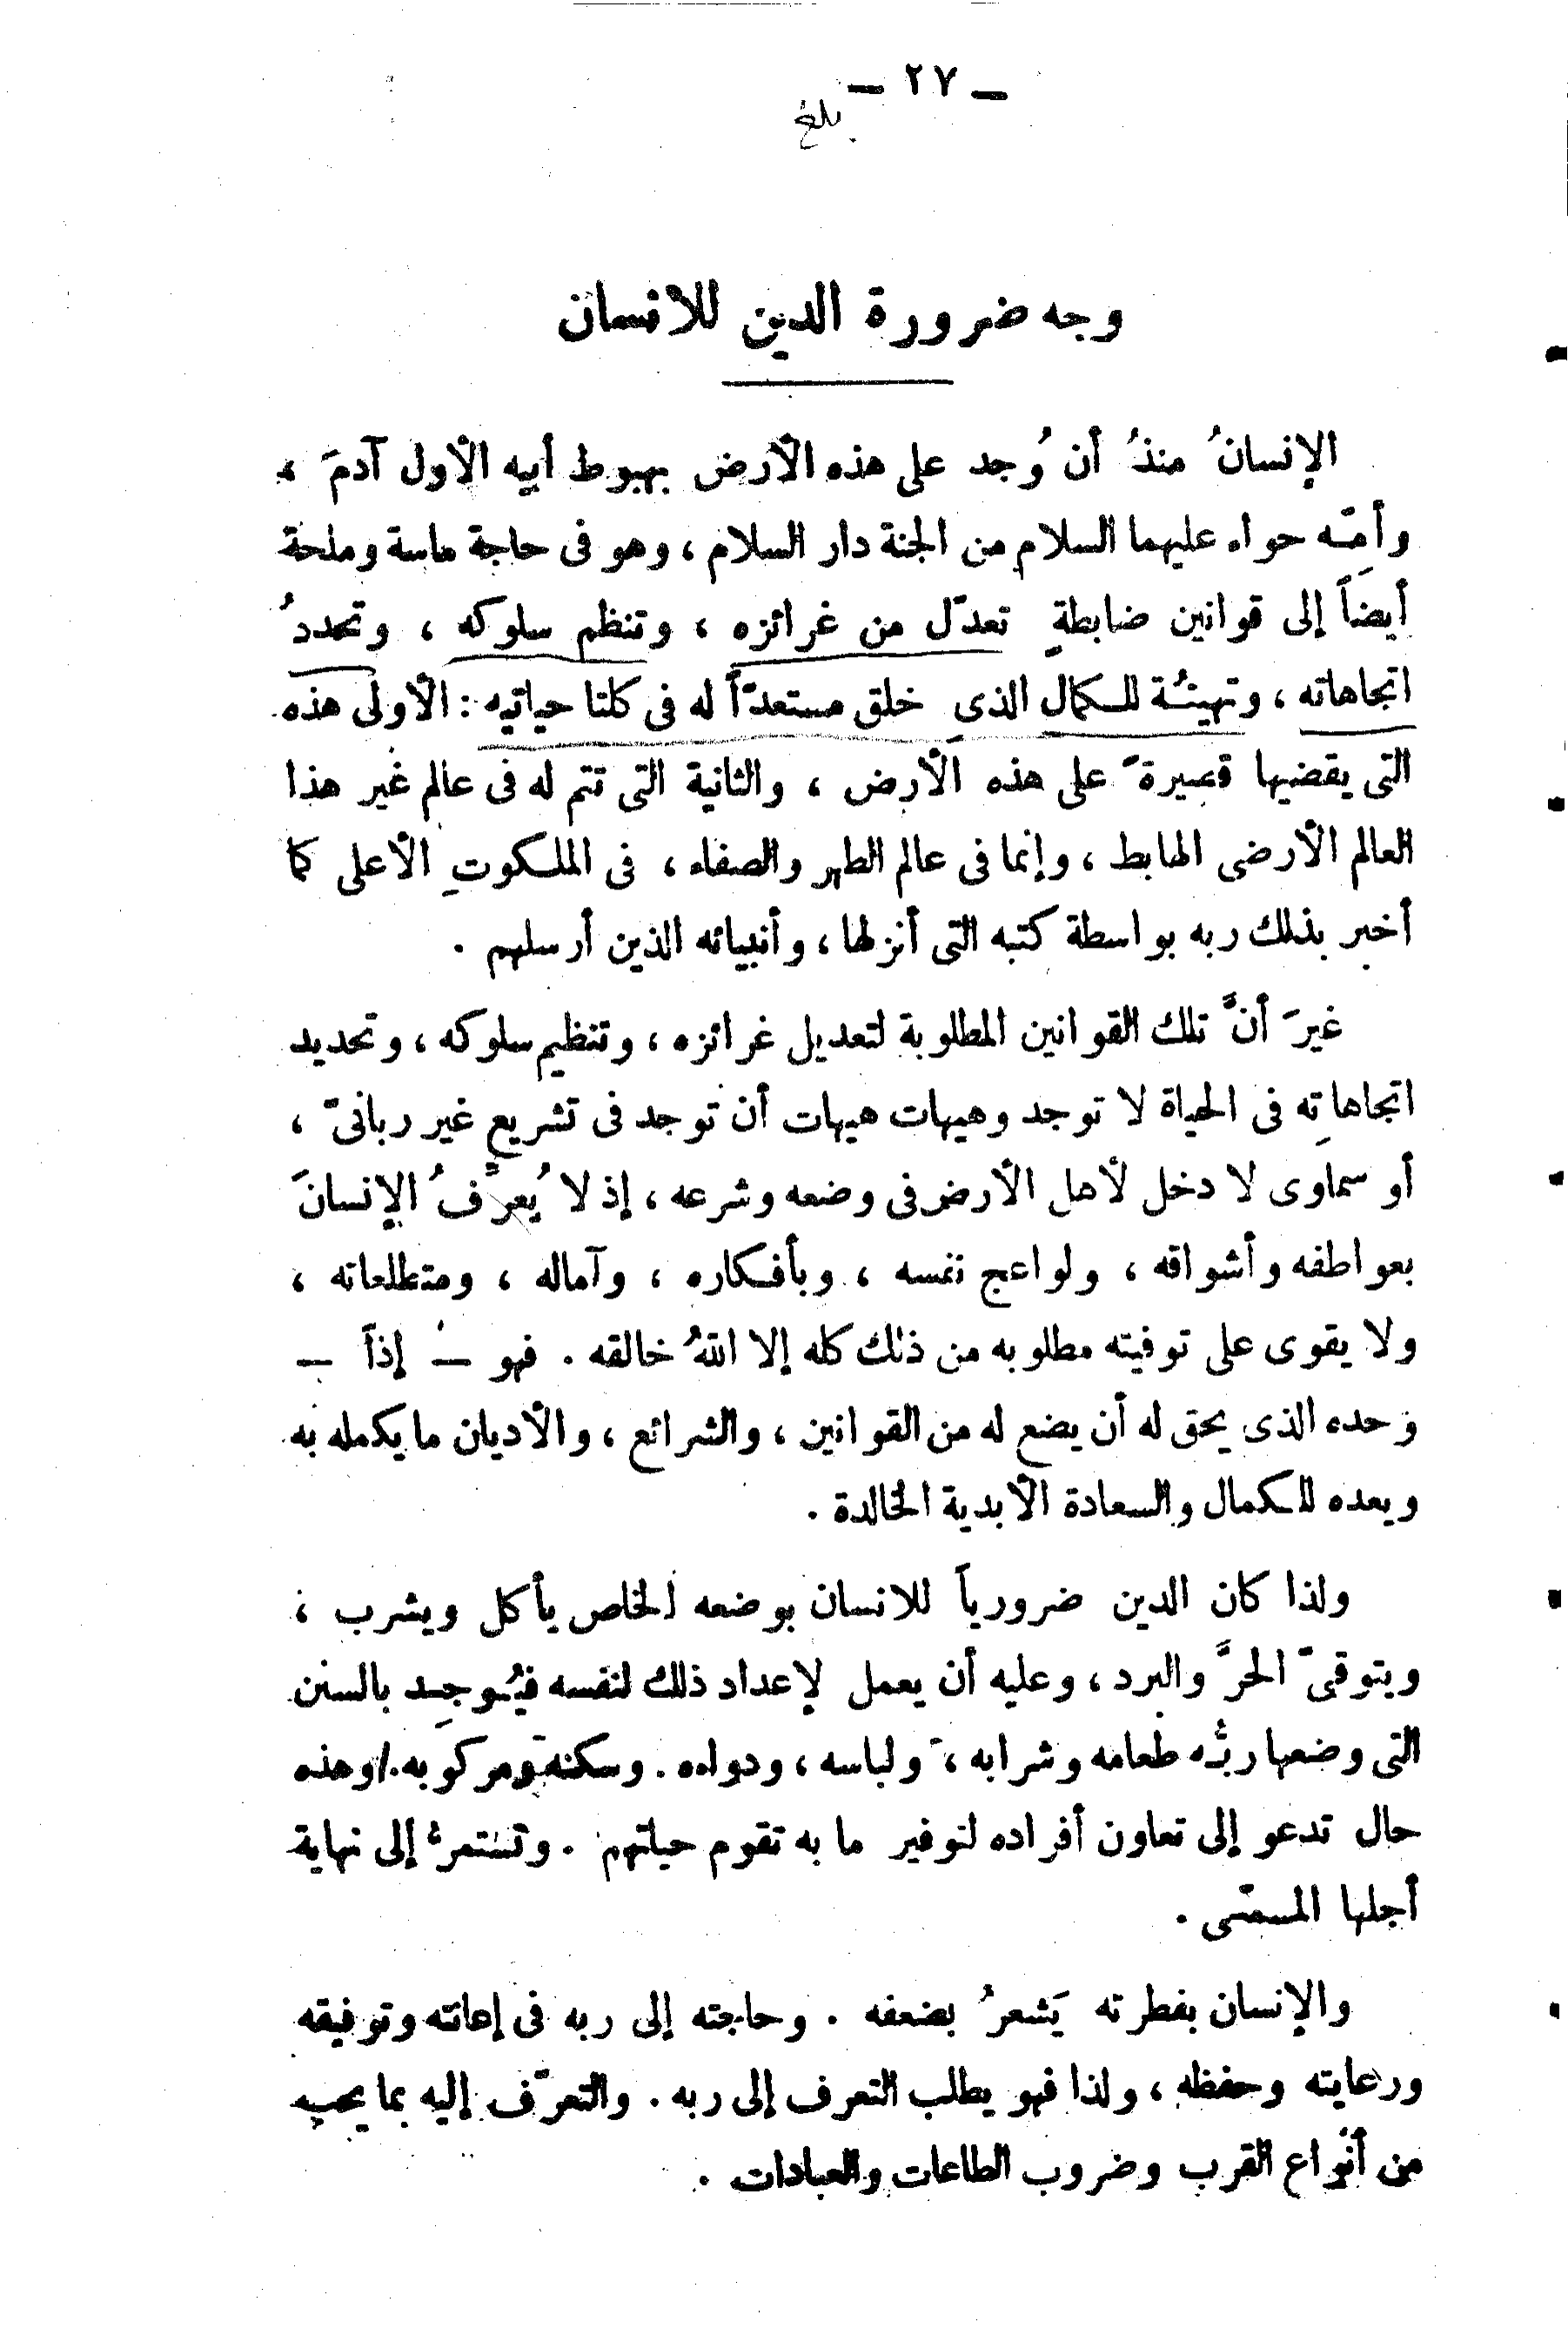 ــ ٢٧ ــ
بلغ
وجه ضرورة الدين للانسان
الإنسانُ منذُ أن وُجد على هذه الأرض بهبوط أبيه الأول آدمَ ،
وأمّه حواء عليهما السلام من الجنة دار السلام ، وهو فى حاجة ماسة وملحة
أيضاً إلى قوانين ضابطةٍ تعدّل من غرائزه ، وتنظم سلوكه ، وتحددُ
اتجاهاته ، وتهيئُة للكمال الذى خلق مستعدّاً له فى كلتا حياتيه : الأولى هذه
التى يقضيها قصيرةً على هذه الأرض ، والثانية التى تتم له فى عالم غير هذا
العالم الأرضى الهابط ، وإنما فى عالم الطهر والصفاء ، فى الملكوتِ الأعلى كما
أخبر بذلك ربه بواسطة كتبه التى أنزلها ، وأنبيائه الذين أرسلهم .
غيرَ أنَّ تلك القوانين المطلوبة لتعديل غرائزه ، وتنظيم سلوكه ، وتحديد
اتجاهاتِه فى الحياة لا توجد وهيهات هيهات أن توجد فى تشريعٍ غير ربانىّ ،
أو سماوى لا دخل لأهل الأرض فى وضعه وشرعه ، إذ لا يُعرِّفُ الإنسانَ
بعواطفه وأشواقه ، ولواعج نفسه ، وبأفكاره ، وآماله ، ومتطلعاته ،
ولا يقوى على توفيته مطلوبه من ذلك كله إلا اللهُ خالقه . فهو ــ إذاً ــ
وحده الذى يحق له أن يضع له من القوانين ، والشرائع ، والأديان ما يكمله به
ويعده للكمال والسعادة الأبدية الخالدة .
ولذا كان الدين ضرورياً للانسان بوضعه الخاص يأكل ويشرب ،
ويتوقىّ الحرَّ والبرد ، وعليه أن يعمل لإعداد ذلك لنفسه فيُوجِد بالسنن
التى وضعها ربُّه طعامه وشرابه ، ولباسه ، ودواءه . وسكنه ومركوبه . وهذه
حال تدعو إلى تعاون أفراده لتوفير ما به تقوم حياتهم . وتستمرُّ إلى نهاية
أجلها المسمّى .
والإنسان بفطرته يَشعرُ بضعفه . وحاجته إلى ربه فى إعانته وتوفيقه
ورعايته وحفظه ، ولذا فهو يطلب التعرف إلى ربه . والتعرّف إليه بما يحبه
من أنواع القرب وضروب الطاعات والعبادات .